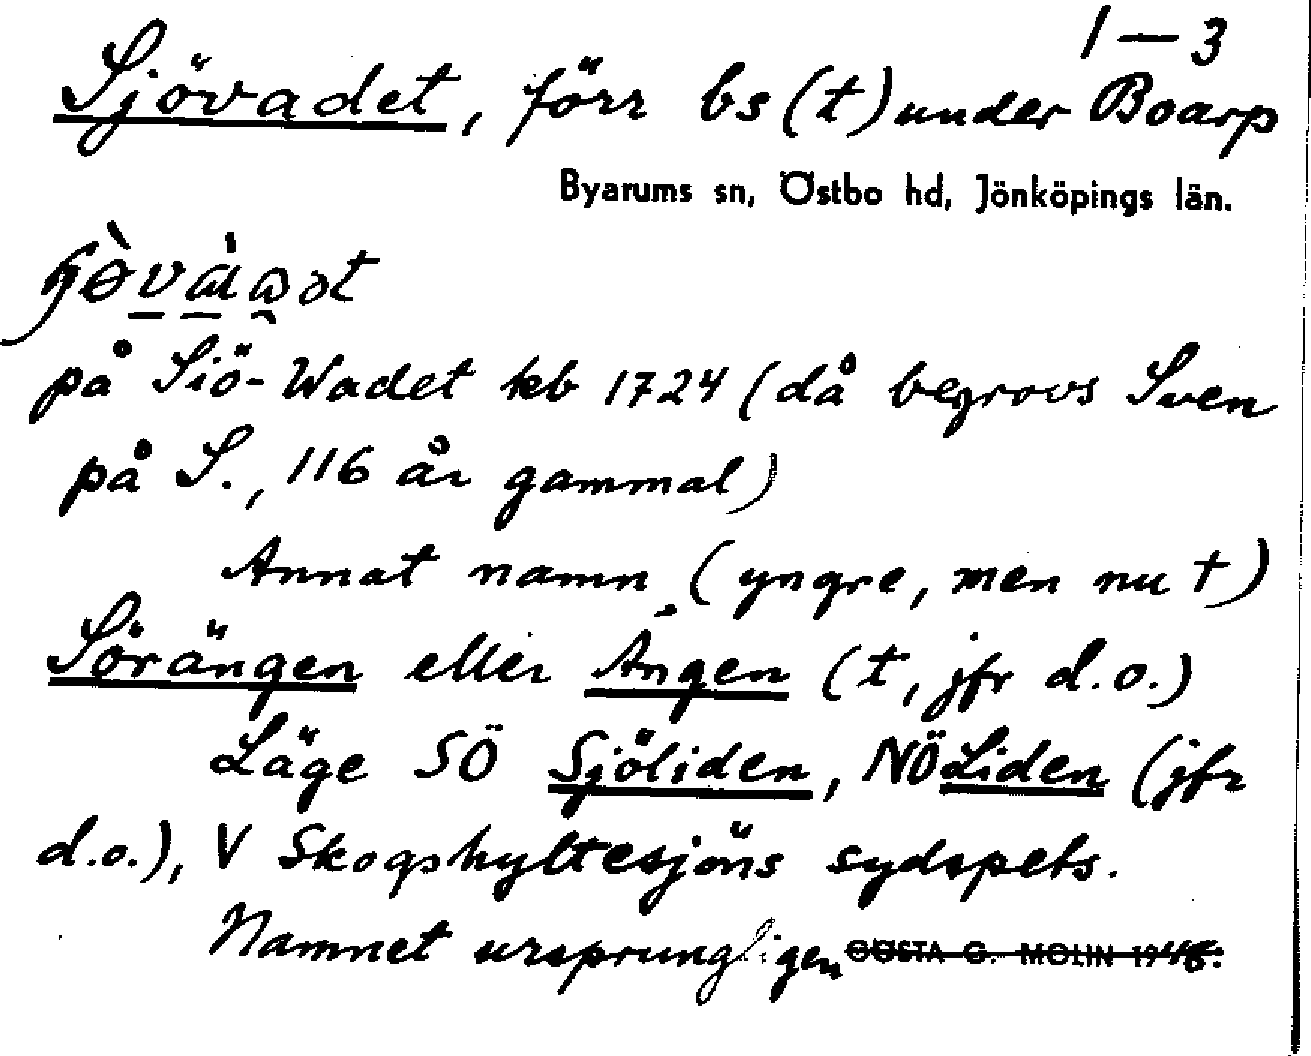 1–3
Sjövadet, förr bs (t) under Boarp
Byarums sn, Östbo hd, Jönköpings län.
på Siö-Wadet kb 1724 (då begrovs Sven
på S., 116 år gammal)
Annat namn (yngre, men nu †)
Sörängen eller Ängen (t, jfr d.o.)
Läge SÖ Sjöliden, NÖ Liden (jfr
d.o.), V Skogshyltesjöns sydspets.
Namnet ursprungligen GÖSTA G. MOLIN 1948.